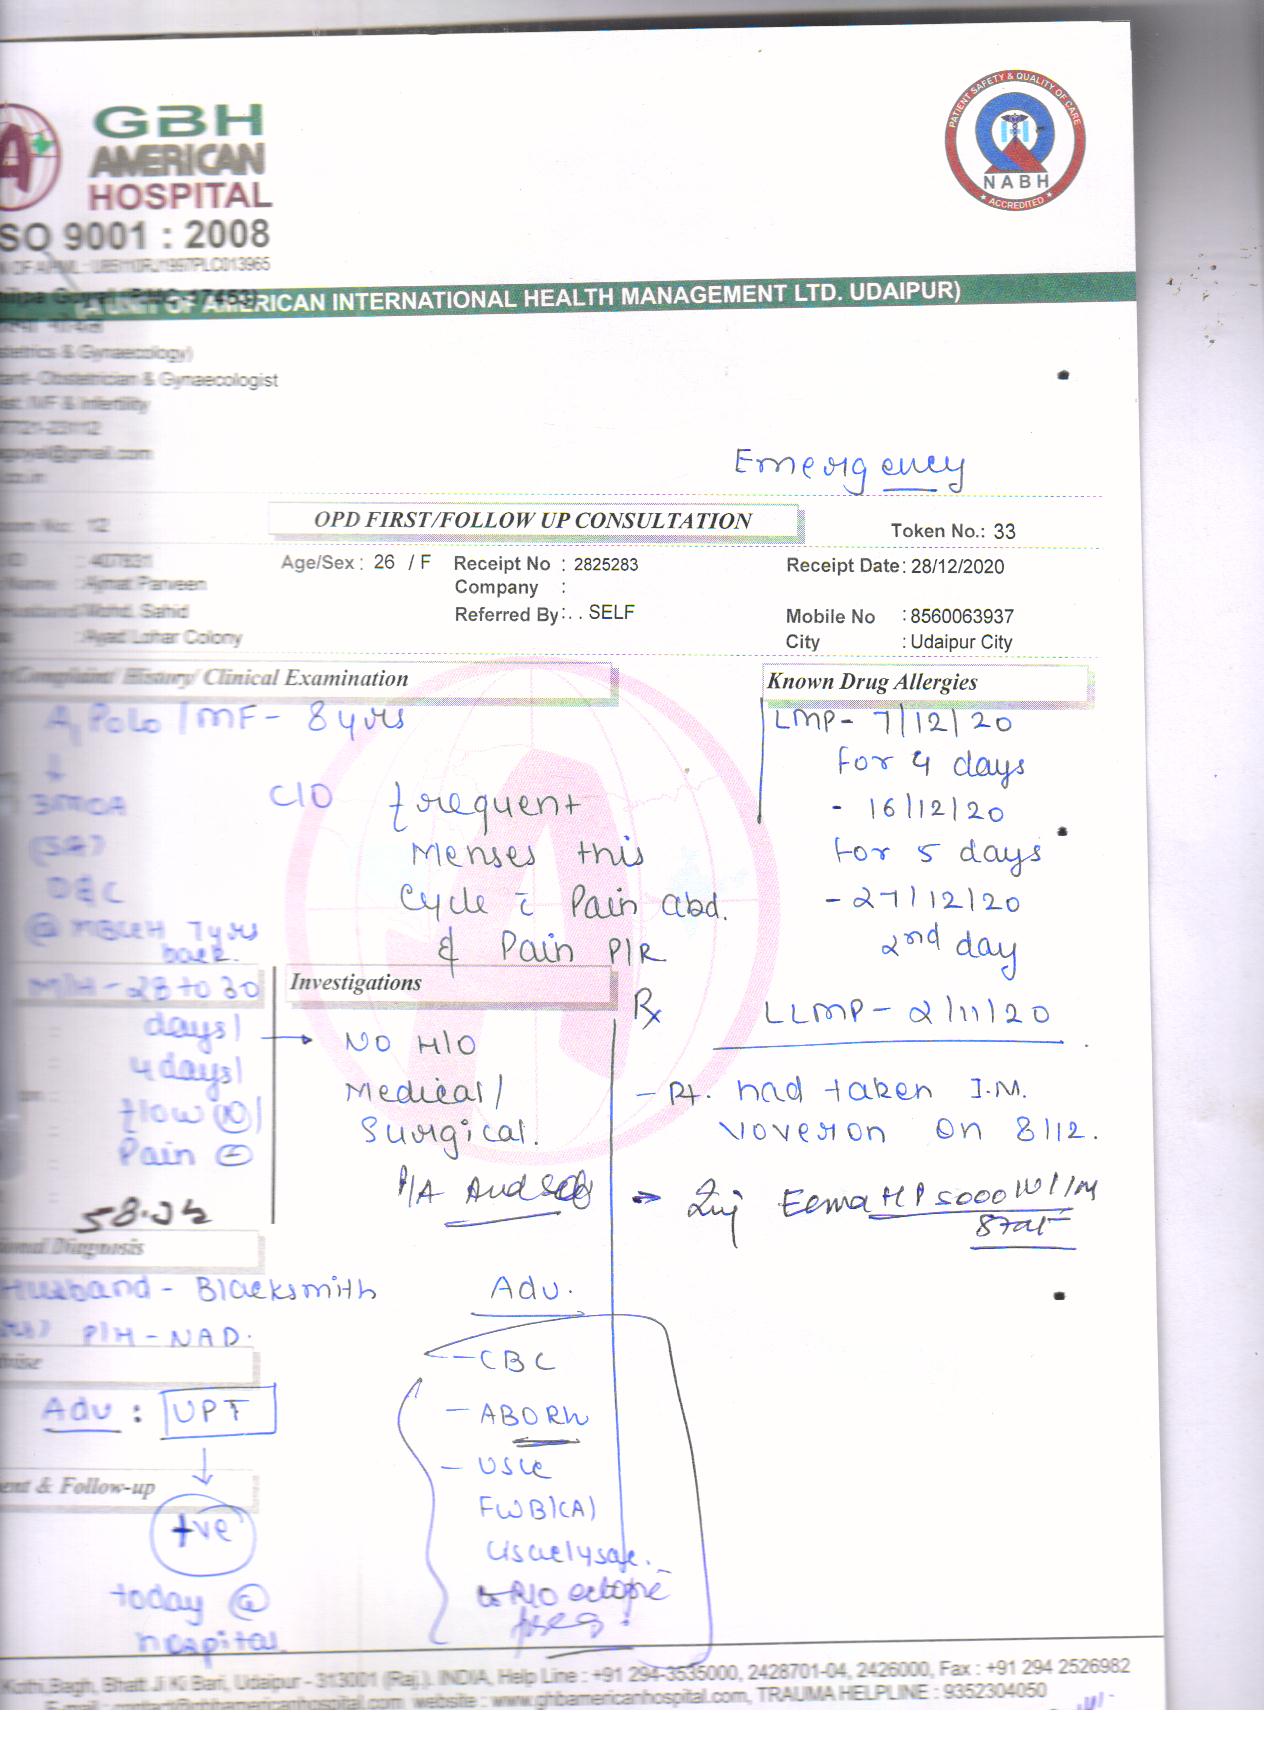 GBH
AMERICAN
HOSPITAL
SO 9001 : 2008
PATIENT SAFETY & QUALITY OF CARE
NABH
ACCREDITED
UNIT OF AMERICAN INTERNATIONAL HEALTH MANAGEMENT LTD. UDAIPUR)
& Gynaecology)
Obstetrician & Gynaecologist
IVF & Infertility
@gmail.com
Emergency
12
OPD FIRST/FOLLOW UP CONSULTATION
Token No.: 33
Age/Sex : 26 / F
Receipt No : 2825283
Receipt Date: 28/12/2020
Company :
Parveen
Husband Mohd. Sahid
Referred By: . . SELF
Mobile No : 8560063937
: Ayad Lohar Colony
City : Udaipur City
Complaint/ History/ Clinical Examination
Known Drug Allergies
A1 P0L0 / MF - 8 yrs
LMP - 7/12/20
for 4 days
3MOA
C/O frequent
- 16/12/20
(SA)
Menses this
for 5 days
D&C
Cycle c̄ Pain abd.
- 27/12/20
@ 7 yrs
back.
& Pain P/R
2nd day
M/H - 28 to 30
Investigations
Rx
LLMP - 2/11/20
days/
→ NO H/O
4 days/
Medical/
- Pt. had taken I.M.
flow (N)/
Surgical.
on 8/12.
Pain
P/A
→ Inj 5000 IU I/M
Stat
Diagnosis
Husband - Blacksmith
Adv.
P/H - NAD.
- CBC
Adv : UPT
- ABORh
- USG
& Follow-up
FWB/(A)
+ve
today @
R/O ectopic
hospital.
Kothi Bagh, Bhatt Ji Ki Bari, Udaipur - 313001 (Raj.). INDIA, Help Line : +91 294-3535000, 2428701-04, 2426000, Fax : +91 294 2526982
website : www.gbhamericanhospital.com, TRAUMA HELPLINE : 9352304050